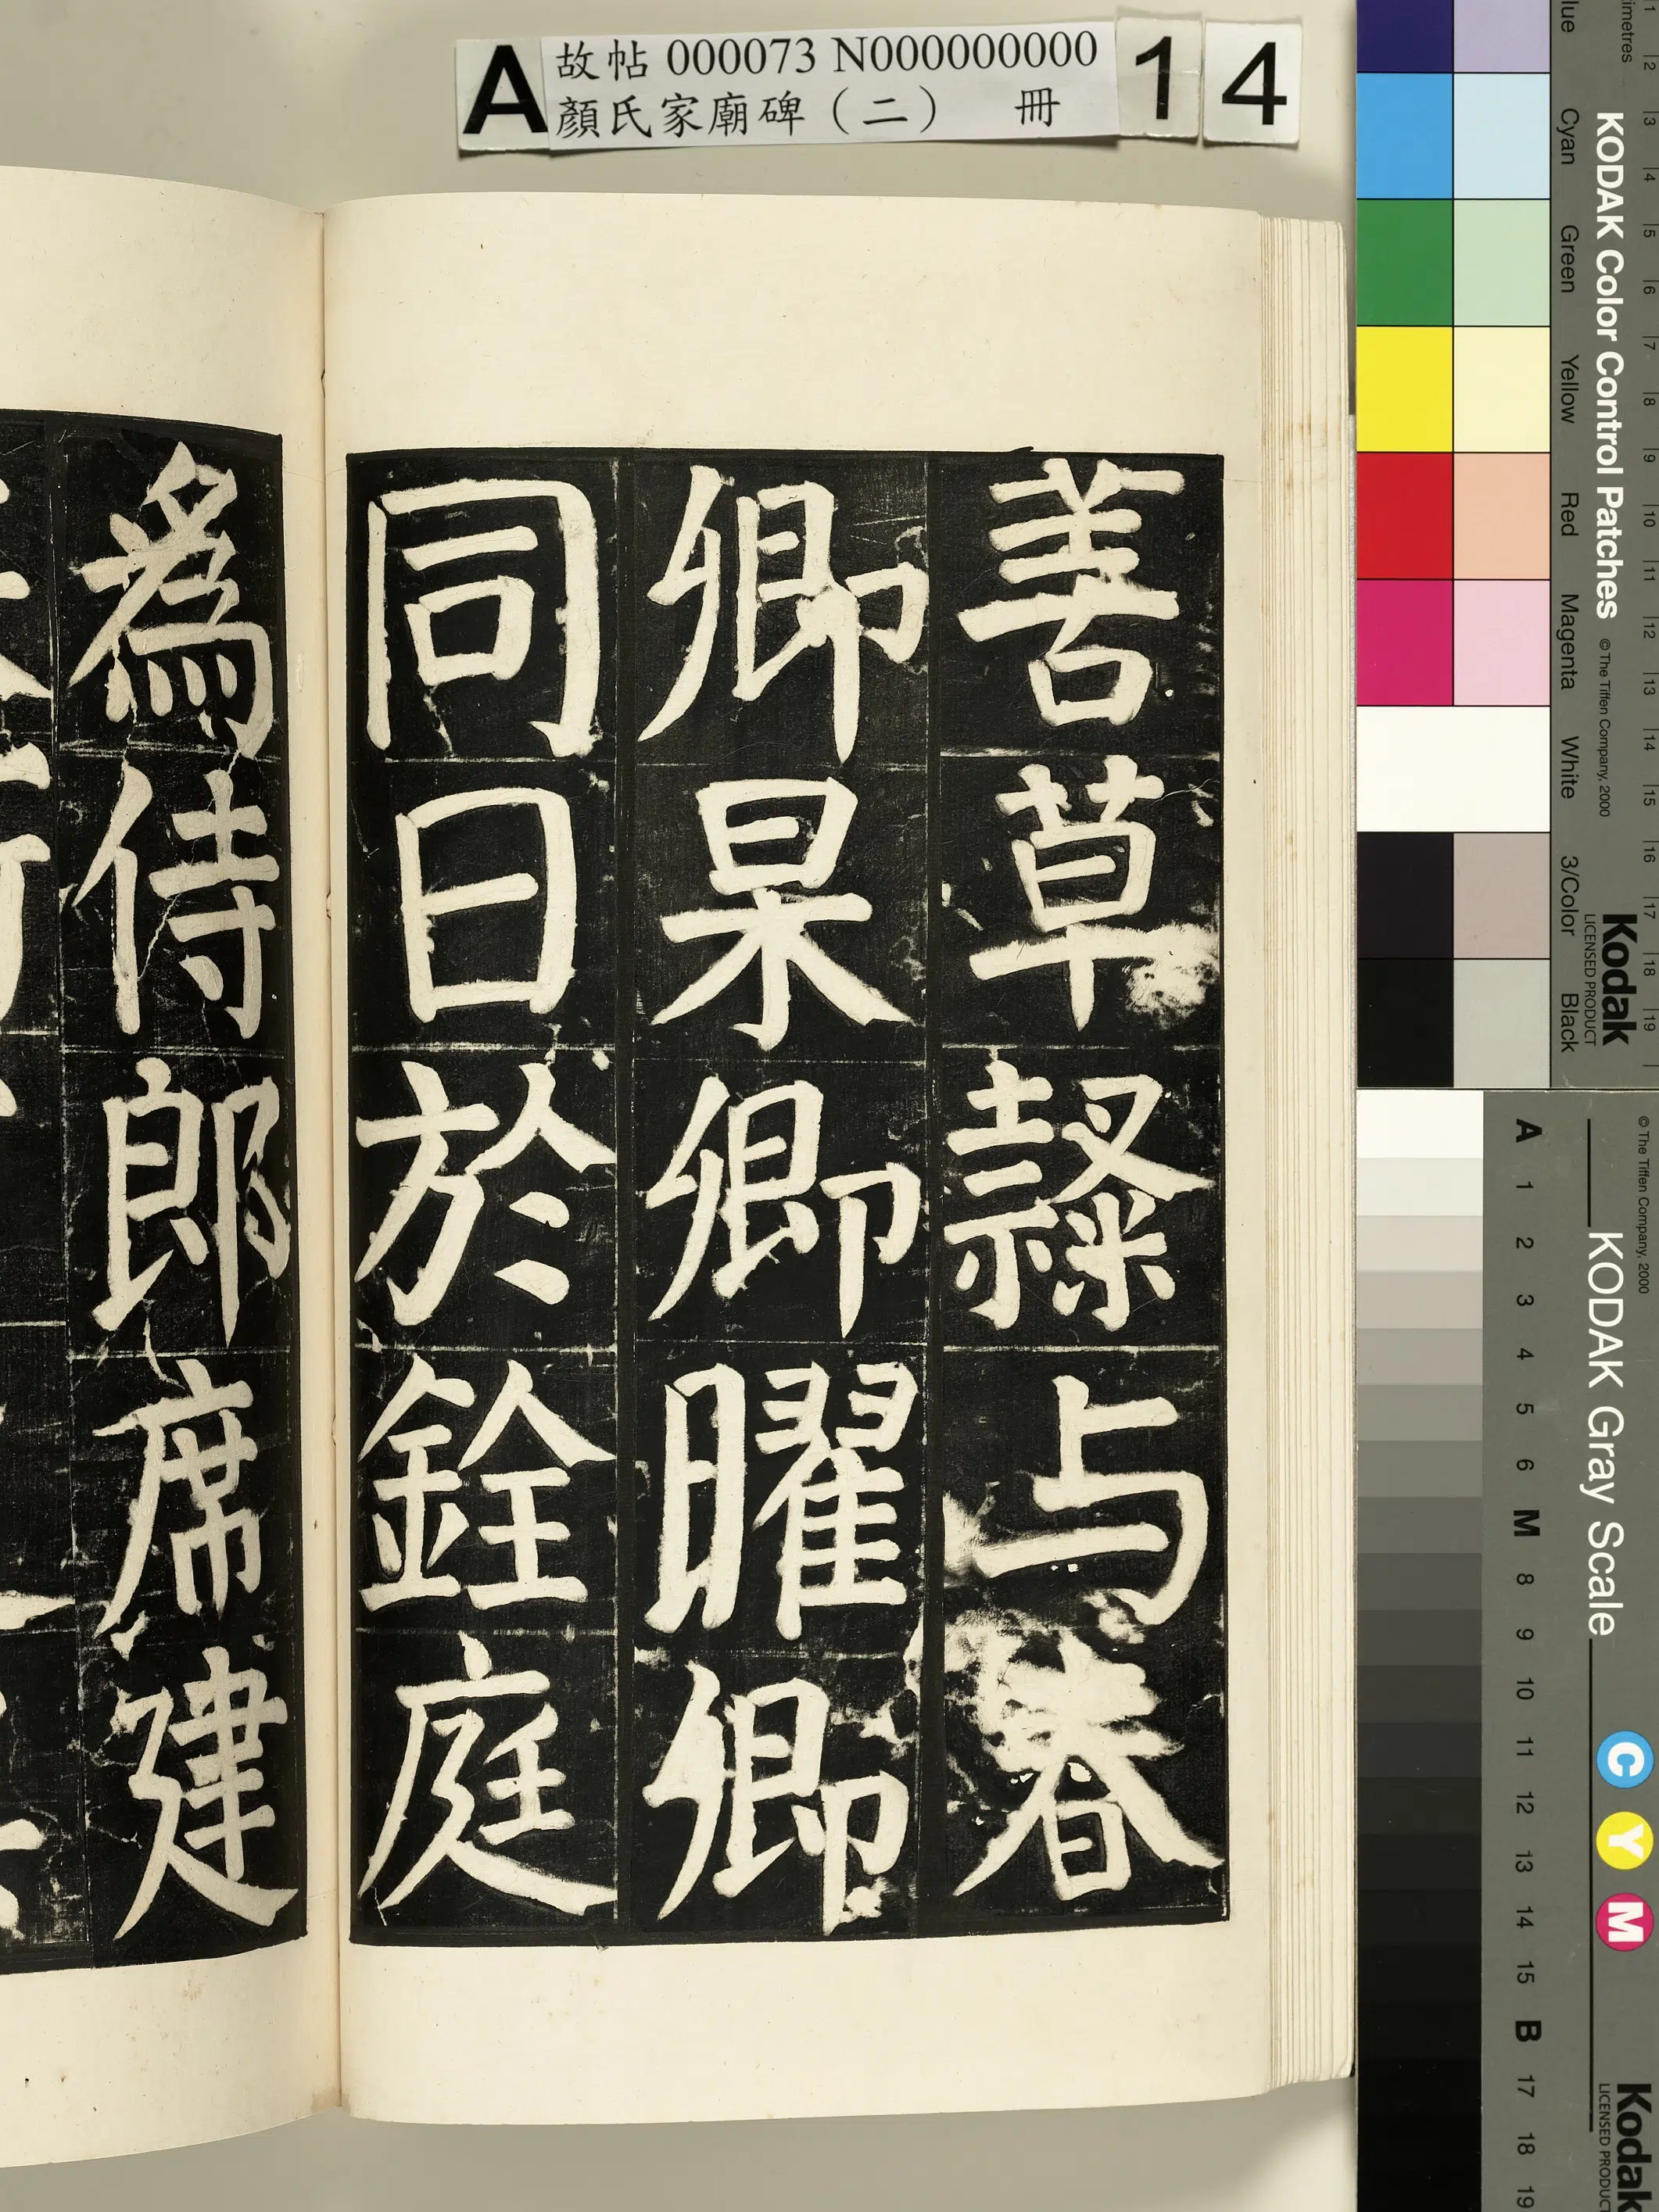 A 故帖 000073 N000000000 14
顏氏家廟碑（二） 冊
善草隸与春
卿杲卿曜卿
同日於銓庭
為侍郎席建
KODAK Color Control Patches
© The Tiffen Company, 2000
Kodak
LICENSED PRODUCT
Cyan Green Yellow Red Magenta White 3/Color Black
1 2 3 4 5 6 7 8 9 10 11 12 13 14 15 16 17 18 19
KODAK Gray Scale
© The Tiffen Company, 2000
C Y M
Kodak
LICENSED PRODUCT
A 1 2 3 4 5 6 M 8 9 10 11 12 13 14 15 B 17 18 19